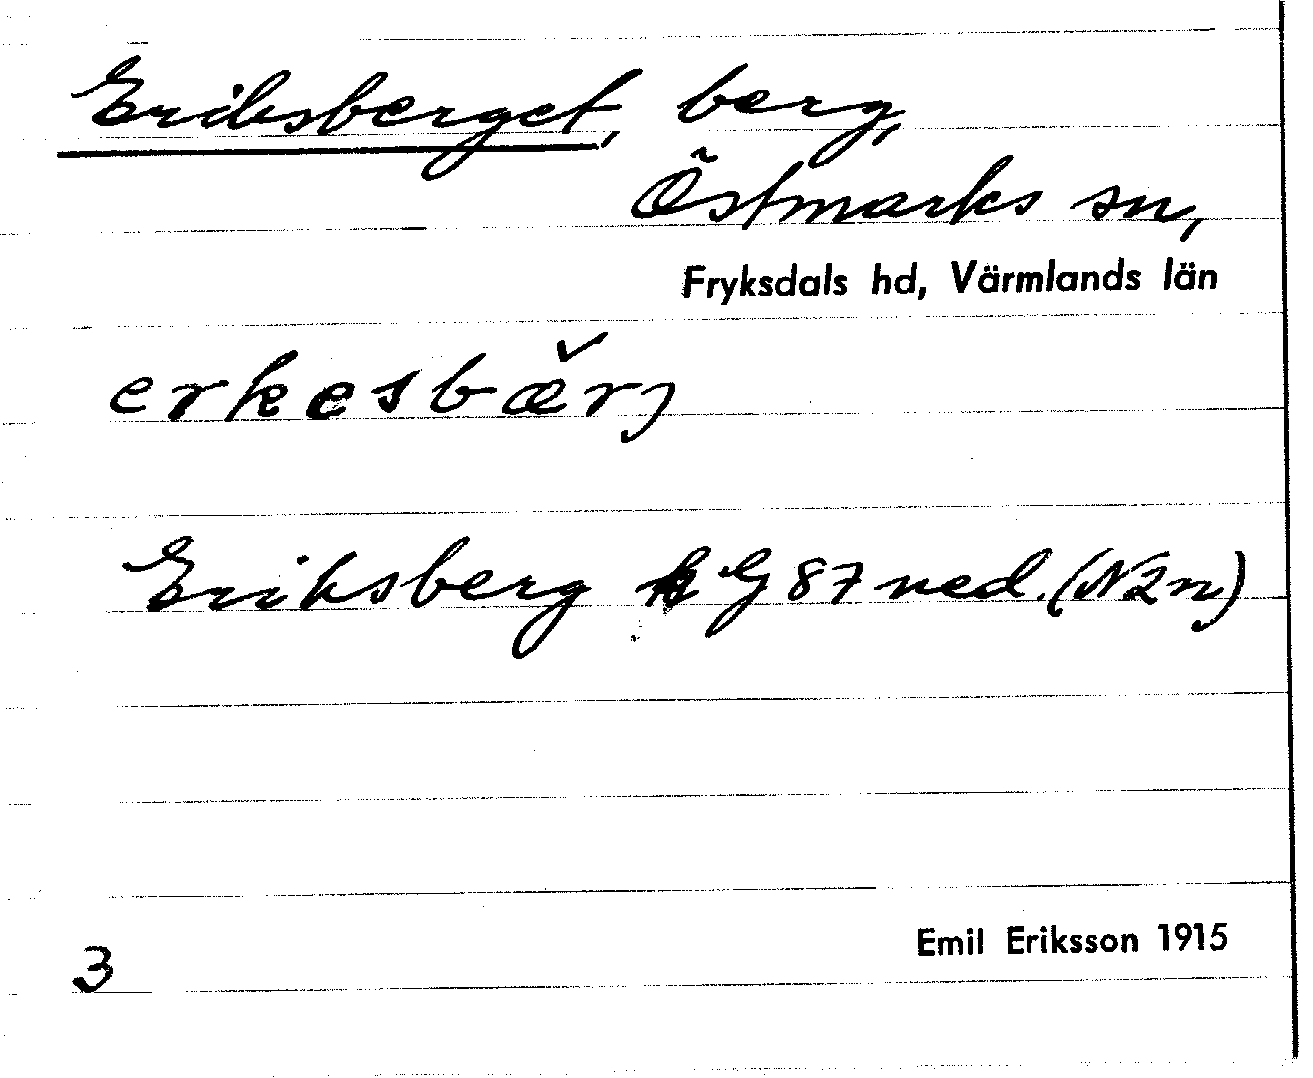 Eriksberget, berg,
Östmarks sn,
Fryksdals hd, Värmlands län
erkesbæ̌rj
Eriksberg k G 87 ned. (N2n)
Emil Eriksson 1915
3